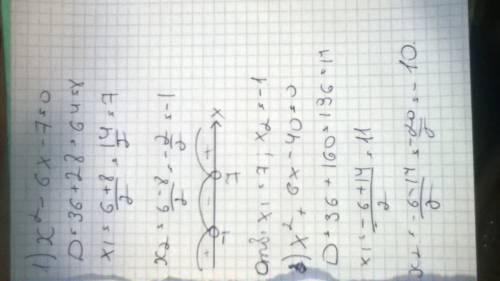 1) x² - 6x - 7 = 0
D = 36 + 28 = 64 = 8
x1 = 6+8/2 = 14/2 = 7
x2 = 6-8/2 = -2/2 = -1
+ - +
-1 7 x
Отв: x1 = 7, x2 = -1
2) x² + 6x - 40 = 0
D = 36 + 160 = 196 = 14
x1 = -6+14/2 = 11
x2 = -6-14/2 = -20/2 = -10